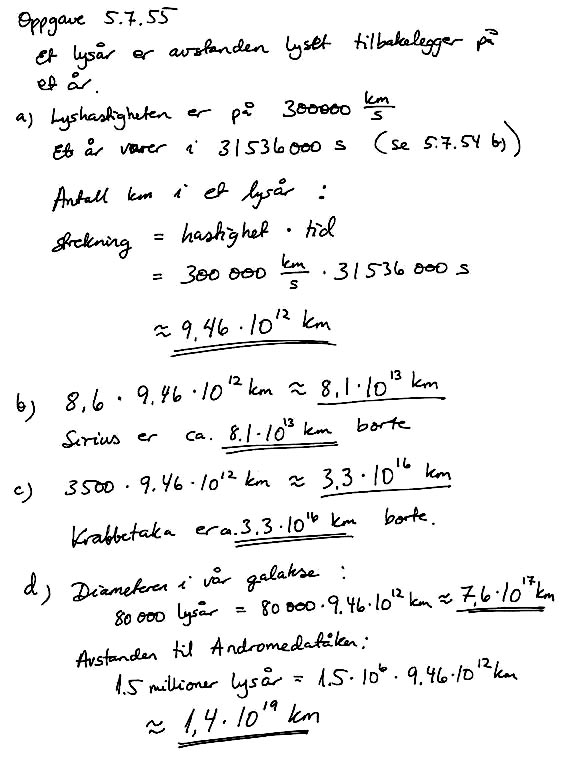 Oppgave 5.7.55
Et lysår er avstanden lyset tilbakelegger på
et år.
a) Lyshastigheten er på 300000 km/s
Et år varer i 31536000 s (se 5.7.54 b)
Antall km i et lysår :
strekning = hastighet · tid
= 300 000 km/s · 31536 000 s
≈ 9,46 · 10¹² km
b) 8,6 · 9,46 · 10¹² km ≈ 8,1 · 10¹³ km
Sirius er ca. 8,1 · 10¹³ km borte
c) 3500 · 9,46 · 10¹² km ≈ 3,3 · 10¹⁶ km
Krabbetåka er ca. 3,3 · 10¹⁶ km borte.
d) Diameteren i vår galakse :
80 000 lysår = 80 000 · 9,46 · 10¹² km ≈ 7,6 · 10¹⁷ km
Avstanden til Andromedatåken :
1,5 millioner lysår = 1,5 · 10⁶ · 9,46 · 10¹² km
≈ 1,4 · 10¹⁹ km